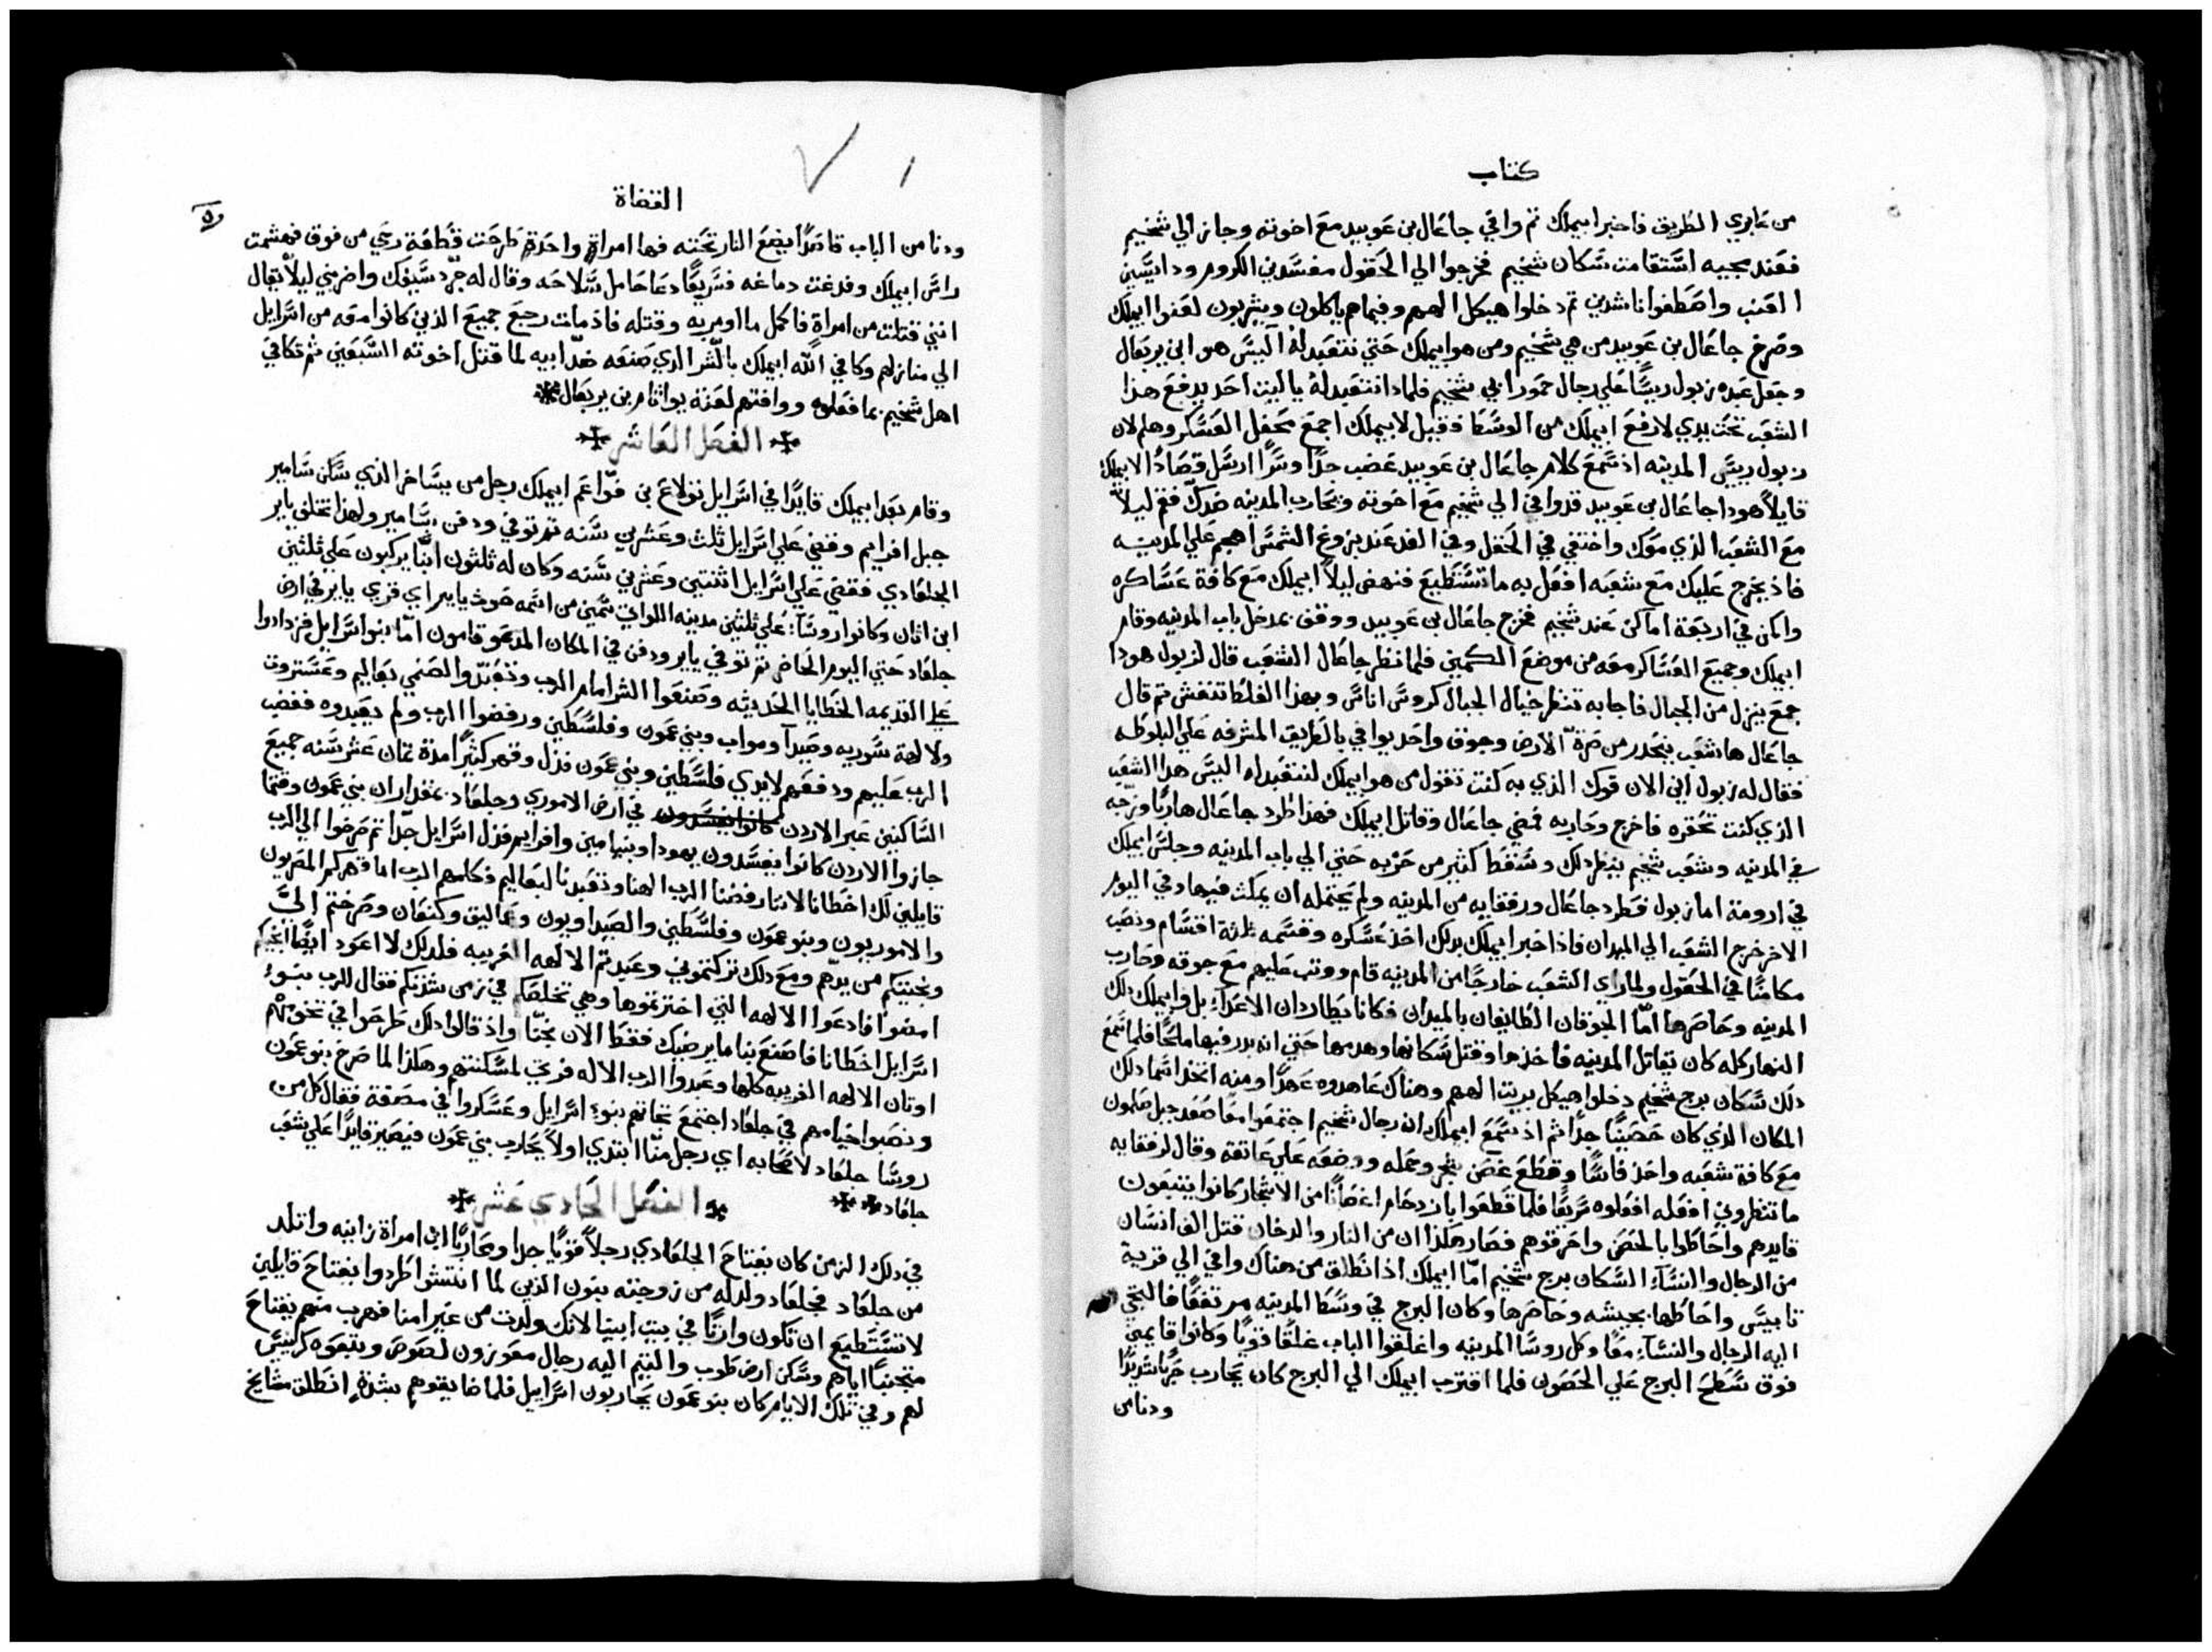 كتاب
من عابري الطريق فاخبر ابيملك ثم وافي جاعال بن عوبيد مع اخوته وجاز الي شخيم
فعند مجيه استقامت سكان شخيم فخرجوا الي الحقول مفسدين الكروم ودايسين
العنب واصطفوا ناشدين ثم دخلوا هيكل الههم وفيماهم ياكلون ويشربون لعنوا ابيملك
وصرخ جاعال بن عوبيد من هي شخيم ومن هو ابيملك حتي نتعبد له اليس هو ابن يربعال
وجعل عبده زبول ريسًا علي رجال حمور ابي شخيم فلماذا نتعبد له ياليت احد يدفع هذا
الشعب تحت يدي لارفع ابيملك من الوسط فقيل لابيملك اجمع محفل العسكر وهلم لان
زبول ريس المدينه اذ سمع كلام جاعال بن عوبيد غضب جدًا وسرًا ارسل قصادًا لابيملك
قايلاً هوذا جاعال بن عوبيد قد وافي الي شخيم مع اخوته ويحارب المدينه ضدك فقم ليلاً
مع الشعب الذي معك واختفي في الحقل وفي الغد عند بزوغ الشمس اهجم علي المدينه
فاذ يخرج عليك مع شعبه افعل به ما تستطيع فنهض ليلاً ابيملك مع كافة عساكره
واكمن في اربعة اماكن عند شخيم فخرج جاعال بن عوبيد ووقف بمدخل باب المدينه وقام
ابيملك وجميع العساكر معه من موضع الكمين فلما نظر جاعال الشعب قال لزبول هوذا
جمع ينزل من الجبال فاجابه تنظر خيال الجبال كروس اناس وبهذا الغلط تنغش ثم قال
جاعال ها شعب ينحدر من صرة الارض وجوق واحد يوافي بالطريق المشرفه علي البلوطه
فقال له زبول اين الان فوك الذي به كنت تقول من هو ابيملك لنتعبد له اليس هذا الشعب
الذي كنت تحقره فاخرج وحاربه فمضي جاعال وقاتل ابيملك فهذا طرد جاعال هاربًا وزجه
في المدينه وشعب شخيم ينظر ذلك وسقط كثير من حزبه حتي الي باب المدينه وجلس ابيملك
في ارومة اما زبول فطرد جاعال ورفقايه من المدينه ولم يحتمله ان يمكث فيها وفي اليوم
الاخر خرج الشعب الي الميدان فاذ اخبر ابيملك بذلك اخذ عسكره وقسمه ثلثة اقسام ونصب
مكامنًا في الحقول ولما راي الشعب خارجًا من المدينه قام ووثب عليهم مع جوقه وحارب
المدينه وحاصرها امّا الجوقان الطايفان بالميدان فكانا يطاردان الاعداء بل وابيملك ذلك
النهار كله كان يقاتل المدينه فاخذها وقتل سكانها وهدمها حتي انه بدر فيها ملحًا فلما سمع
ذلك سكان برج شخيم دخلوا هيكل بريت الههم وهناك عاهدوه عهدًا ومنه اتخذ اسما ذلك
المكان الذي كان حصينًا جدًا ثم اذ سمع ابيملك ان رجال شخيم اجتمعوا معًا صعد جبل صلمون
مع كافة شعبه واخذ فاسًا وقطع غصن شجر وحمله ووضعه علي عاتقه وقال لرفقايه
ما تنظروني افعله افعلوه سريعًا فلما قطعوا بازدحام اغصانًا من الاشجار كانوا يتبعون
قايدهم واحاطوا بالحصن واحرقوهم فصار هكذا ان من النار والدخان قتل الف انسان
من الرجال والنساء السكان برج شخيم امّا ابيملك اذ انطلق من هناك وافي الي قرية
تابيس واحاطها بجيشه وحاصرها وكان البرج في وسط المدينه مرتفعًا فالتجي
اليه الرجال والنساء معًا وكل روسا المدينه واغلقوا الباب غلقًا قويًا وكانوا قايمين
فوق سطح البرج علي الحصون فلما اقترب ابيملك الي البرج كان يحارب حربًا شديدًا
ودنا من
القضاة
ودنا من الباب قاصدًا يضع النار تحته فها امراةٍ واحدةٍ طرحت قطعة رحي من فوق فهشمت
راس ابيملك وفدغت دماغه فسريعًا دعا حامل سلاحه وقال له جرد سيفك واضربني ليلاً يقال
انني قتلت من امراة فاكمل ما اومر به وقتله فاذ مات رجع جميع الذين كانوا معه من اسرايل
الي منازلهم وكافي الله ابيملك بالشر الذي صنعه ضد ابيه لما قتل اخوته السبعين ثم تكافي
اهل شخيم بما فعلوه ووافتهم لعنة يواثام بن يربعال
الفصل العاشر
وقام بعد ابيملك قايدًا في اسرايل تولاع بن فوّا عم ابيملك رجل من يساخر الذي سكن سامير
جبل افرايم وقضي علي اسرايل ثلث وعشرين سنه ثم توفي ودفن بسامير ولهذا تخلف ياير
الجلعادي فقضي علي اسرايل اثنتين وعشرين سنه وكان له ثلثون ابنًا يركبون علي ثلثين
ابن اتان وكانوا روسآء علي ثلثين مدينه اللواتي سمين من اسمه حووث ياير اي قري ياير في ارض
جلعاد حتي اليوم الحاضر ثم توفي ياير ودفن في المكان المدعو قامون امّا بنو اسرايل فزدادوا
علي القديمه الخطايا الحديثه وصنعوا الشر امام الرب وتعبدوا لصنمي بعاليم وعستروت
ولالهة سوريه وصيدا ومواب وبني عمون وفلسطين ورفضوا الرب ولم يعبدوه فغضب
الرب عليهم ودفعهم لايدي فلسطين وبني عمون فذل وقهر كثيرًا مدة ثمان عشر سنه جميع
الساكنين عبر الاردن كانوا يفسدون في ارض الاموري وجلعاد بمقدار ان بني عمون وقتما
جازوا الاردن كانوا يفسدون يهودا وبنيامين وافرايم فذل اسرايل جدًا ثم صرخوا الي الرب
قايلين لك اخطانا لاننا رفضنا الرب الهنا وتعبدنا لبعاليم فكلمهم الرب اما قهركم المصريون
والاموريون وبنو عمون وفلسطين والصيداويون وعماليق وكنعان وصرختم اليَّ
ونجيتكم من يدهم ومع ذلك تركتموني وعبدتم الالهه الغريبه فلذلك لا اعود ايضًا انجيكم
امضوا فادعوا الالهه التي اخترتموها وهي تخلصكم في زمن شدتكم فقال للرب بنوء
اسرايل اخطانا فاصنع بنا ما يرضيك فقط الان نجنا واذ قالوا ذلك طرحوا في تخومهم
اوتان الالهه الغريبه كلها وعبدوا الرب الاله فرتي لمسكنتهم وهكذا لما صرخ بنو عمون
ونصبوا خيامهم في جلعاد اجتمع تجاههم بنوء اسرايل وعسكروا في مصفة فقال كل من
روسا جلعاد لاصحابه اي رجل منّا ابتدي اولاً يحارب بني عمون فيصير قايدًا علي شعب
جلعاد
الفصل الحادي عشر
في ذلك الزمن كان يفتاح الجلعادي رجلاً قويًا جدا ومحاربًا ابن امراة زانيه واتلد
من جلعاد فجلعاد ولد له من زوجته بنون الذين لما انتشوا طردوا يفتاح قايلين
لا تستطيع ان تكون وارثًا في بيت ابينا لانك ولدت من غير امنا فهرب منهم يفتاح
متجنبًا اياهم وسكن ارض طوب والتيم اليه رجال معوزون لصوص ويتبعوه كرييس
لهم وفي تلك الايام كان بنو عمون يحاربون اسرايل فلما ضايقوهم بشدةٍ انطلق مشايخ